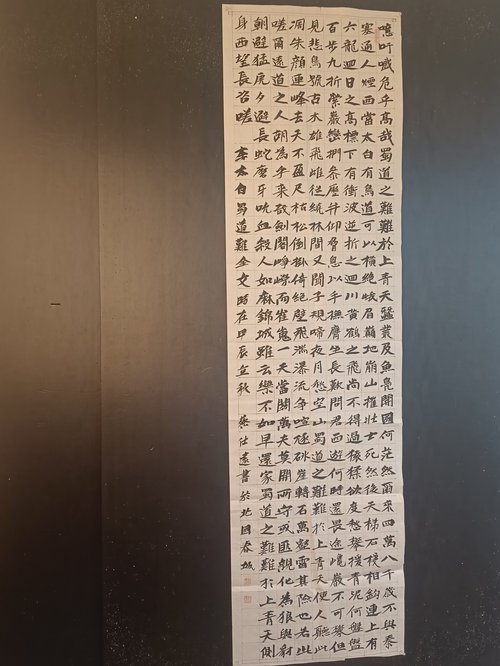 噫吁嚱危乎高哉蜀道之難難於上青天蠶叢及魚鳧開國何茫然爾來四萬八千歲不與秦
塞通人煙西當太白有鳥道可以橫絕峨眉巔地崩山摧壯士死然後天梯石棧相鉤連上有
六龍迴日之高標下有衝波逆折之迴川黃鶴之飛尚不得過猿猱欲度愁攀援青泥何盤盤
百步九折縈巖巒捫參歷井仰脅息以手撫膺坐長歎問君西遊何時還畏途巉巖不可攀但
見悲鳥號古木雄飛雌從繞林間又聞子規啼夜月愁空山蜀道之難難於上青天使人聽此
凋朱顏連峰去天不盈尺枯松倒掛倚絕壁飛湍瀑流爭喧豗砯崖轉石萬壑雷其險也若此
嗟爾遠道之人胡為乎來哉劍閣崢嶸而崔嵬一夫當關萬夫莫開所守或匪親化為狼與豺
朝避猛虎夕避長蛇磨牙吮血殺人如麻錦城雖云樂不如早還家蜀道之難難於上青天側
身西望長咨嗟 李太白蜀道難全文時在甲辰立秋 仕遠書於北國春城